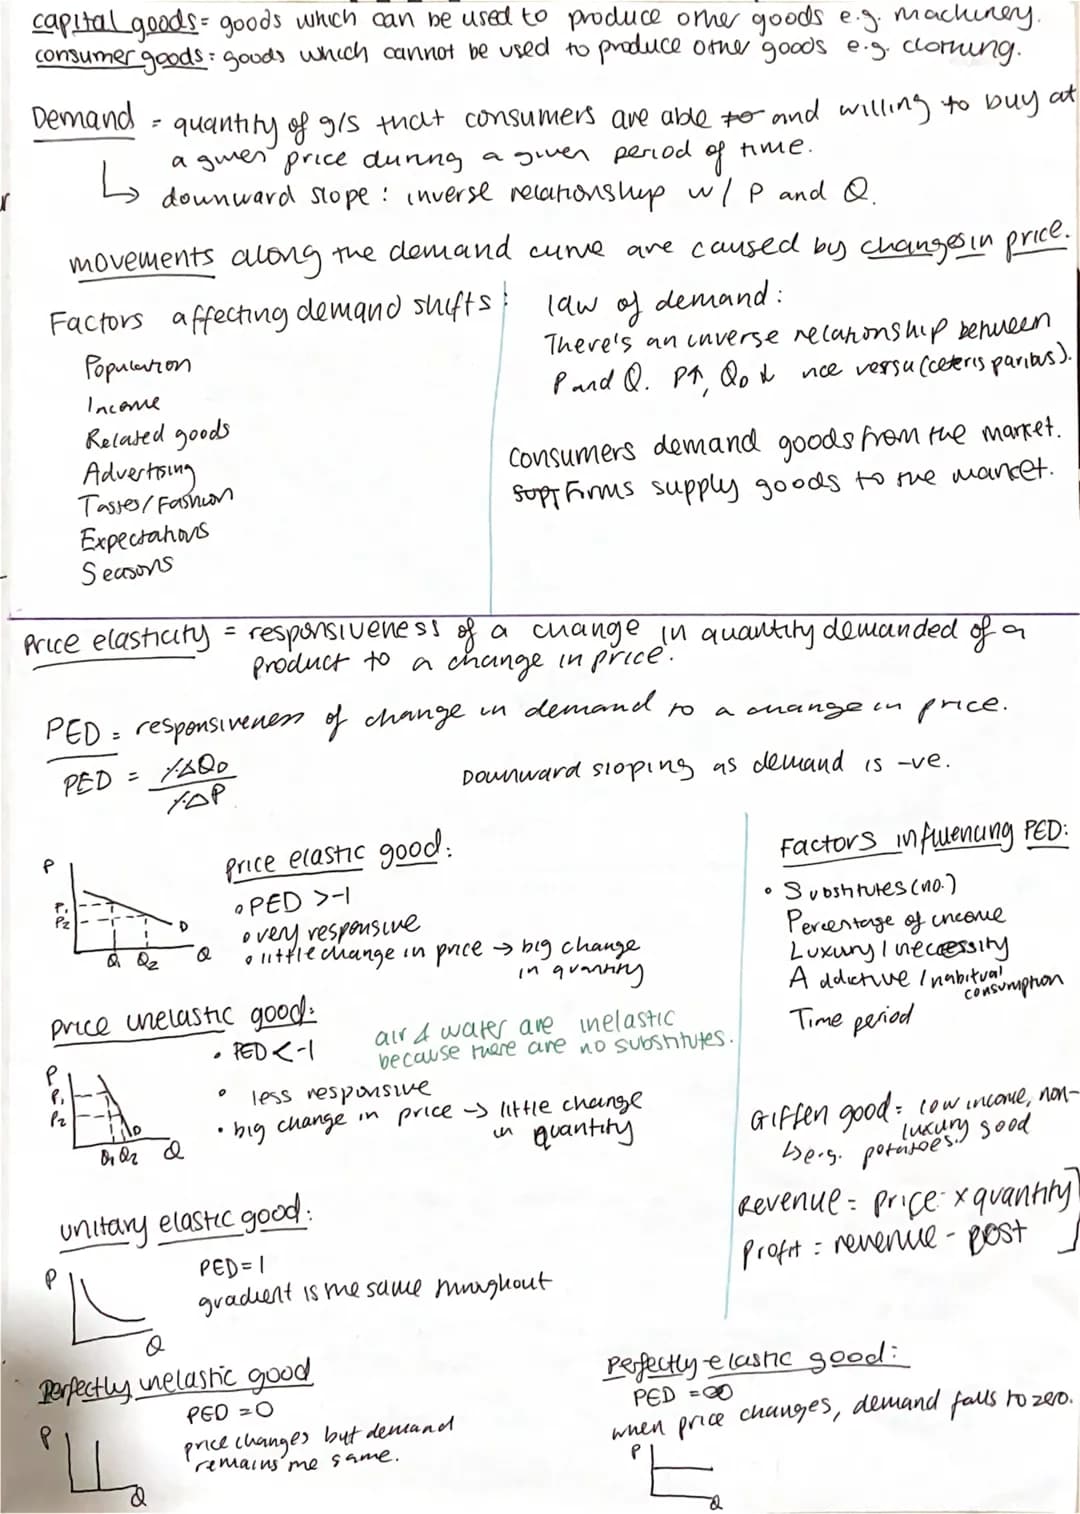 capital goods = goods which can be used to produce other goods e.g. machinery.
consumer goods: goods which cannot be used to produce other goods e.g. clothing.
Demand = quantity of g/s that consumers are able to and willing to buy at
a given price during a given period of time.
↳ downward slope : inverse relationship w/ P and Q.
movements along the demand curve are caused by changes in price.
Factors affecting demand shifts :
Population
Income
Related goods
Advertising
Tastes/Fashion
Expectations
Seasons
law of demand :
There's an inverse relationship between
P and Q. P↑, QD ↓ vice versa (ceteris paribus).
Consumers demand goods from the market.
Firms supply goods to the market.
Price elasticity = responsiveness of a change in quantity demanded of a
product to a change in price.
PED = responsiveness of change in demand to a change in price.
PED = %ΔQD
%ΔP
Downward sloping as demand is -ve.
P
P1
P2
D
Q Q2
Q
price elastic good:
• PED >-1
• very responsive
• little change in price → big change
in quantity
price inelastic good:
• PED <-1
air & water are inelastic
because there are no substitutes.
P
P1
P2
D
Q1 Q2
Q
• less responsive
• big change in price → little change
in quantity
unitary elastic good:
PED=1
gradient is the same throughout
P
Q
Perfectly inelastic good
PED =0
price changes but demand
remains the same.
P
Q
Factors influencing PED:
• Substitutes (no.)
Percentage of income
Luxury / neccessity
Addictive / habitual
consumption
Time period
Giffen good = low income, non-
luxury good
↳ e.g. potatoes.
Revenue = price x quantity
Profit = revenue - cost
Perfectly elastic good:
PED =∞
when price changes, demand falls to zero.
P
Q